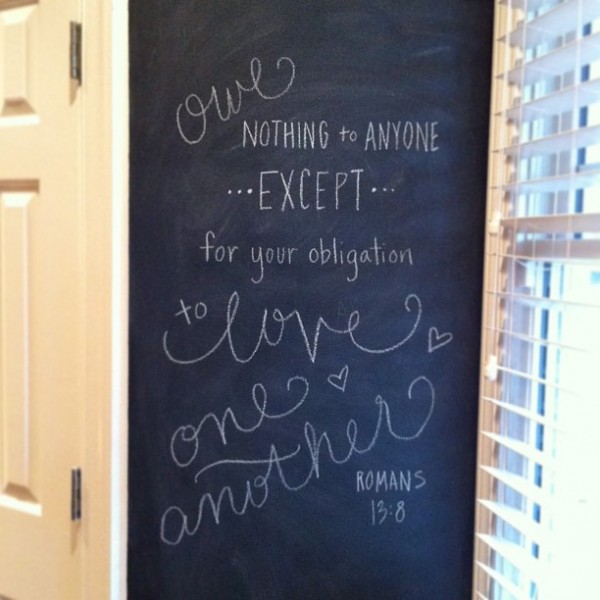 owe
NOTHING to ANYONE
...EXCEPT...
for your obligation
to love
one
another
ROMANS
13:8